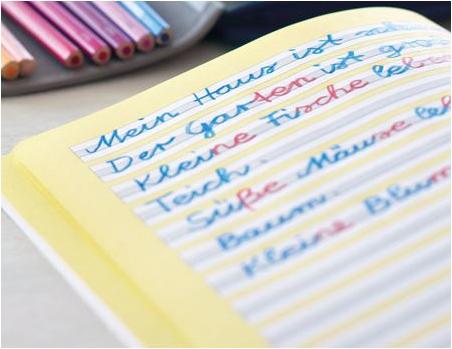 Mein Haus ist
Der Garten ist
Kleine Fische leben
Teich.
Süße Mäuse
Baum.
Kleine Blum